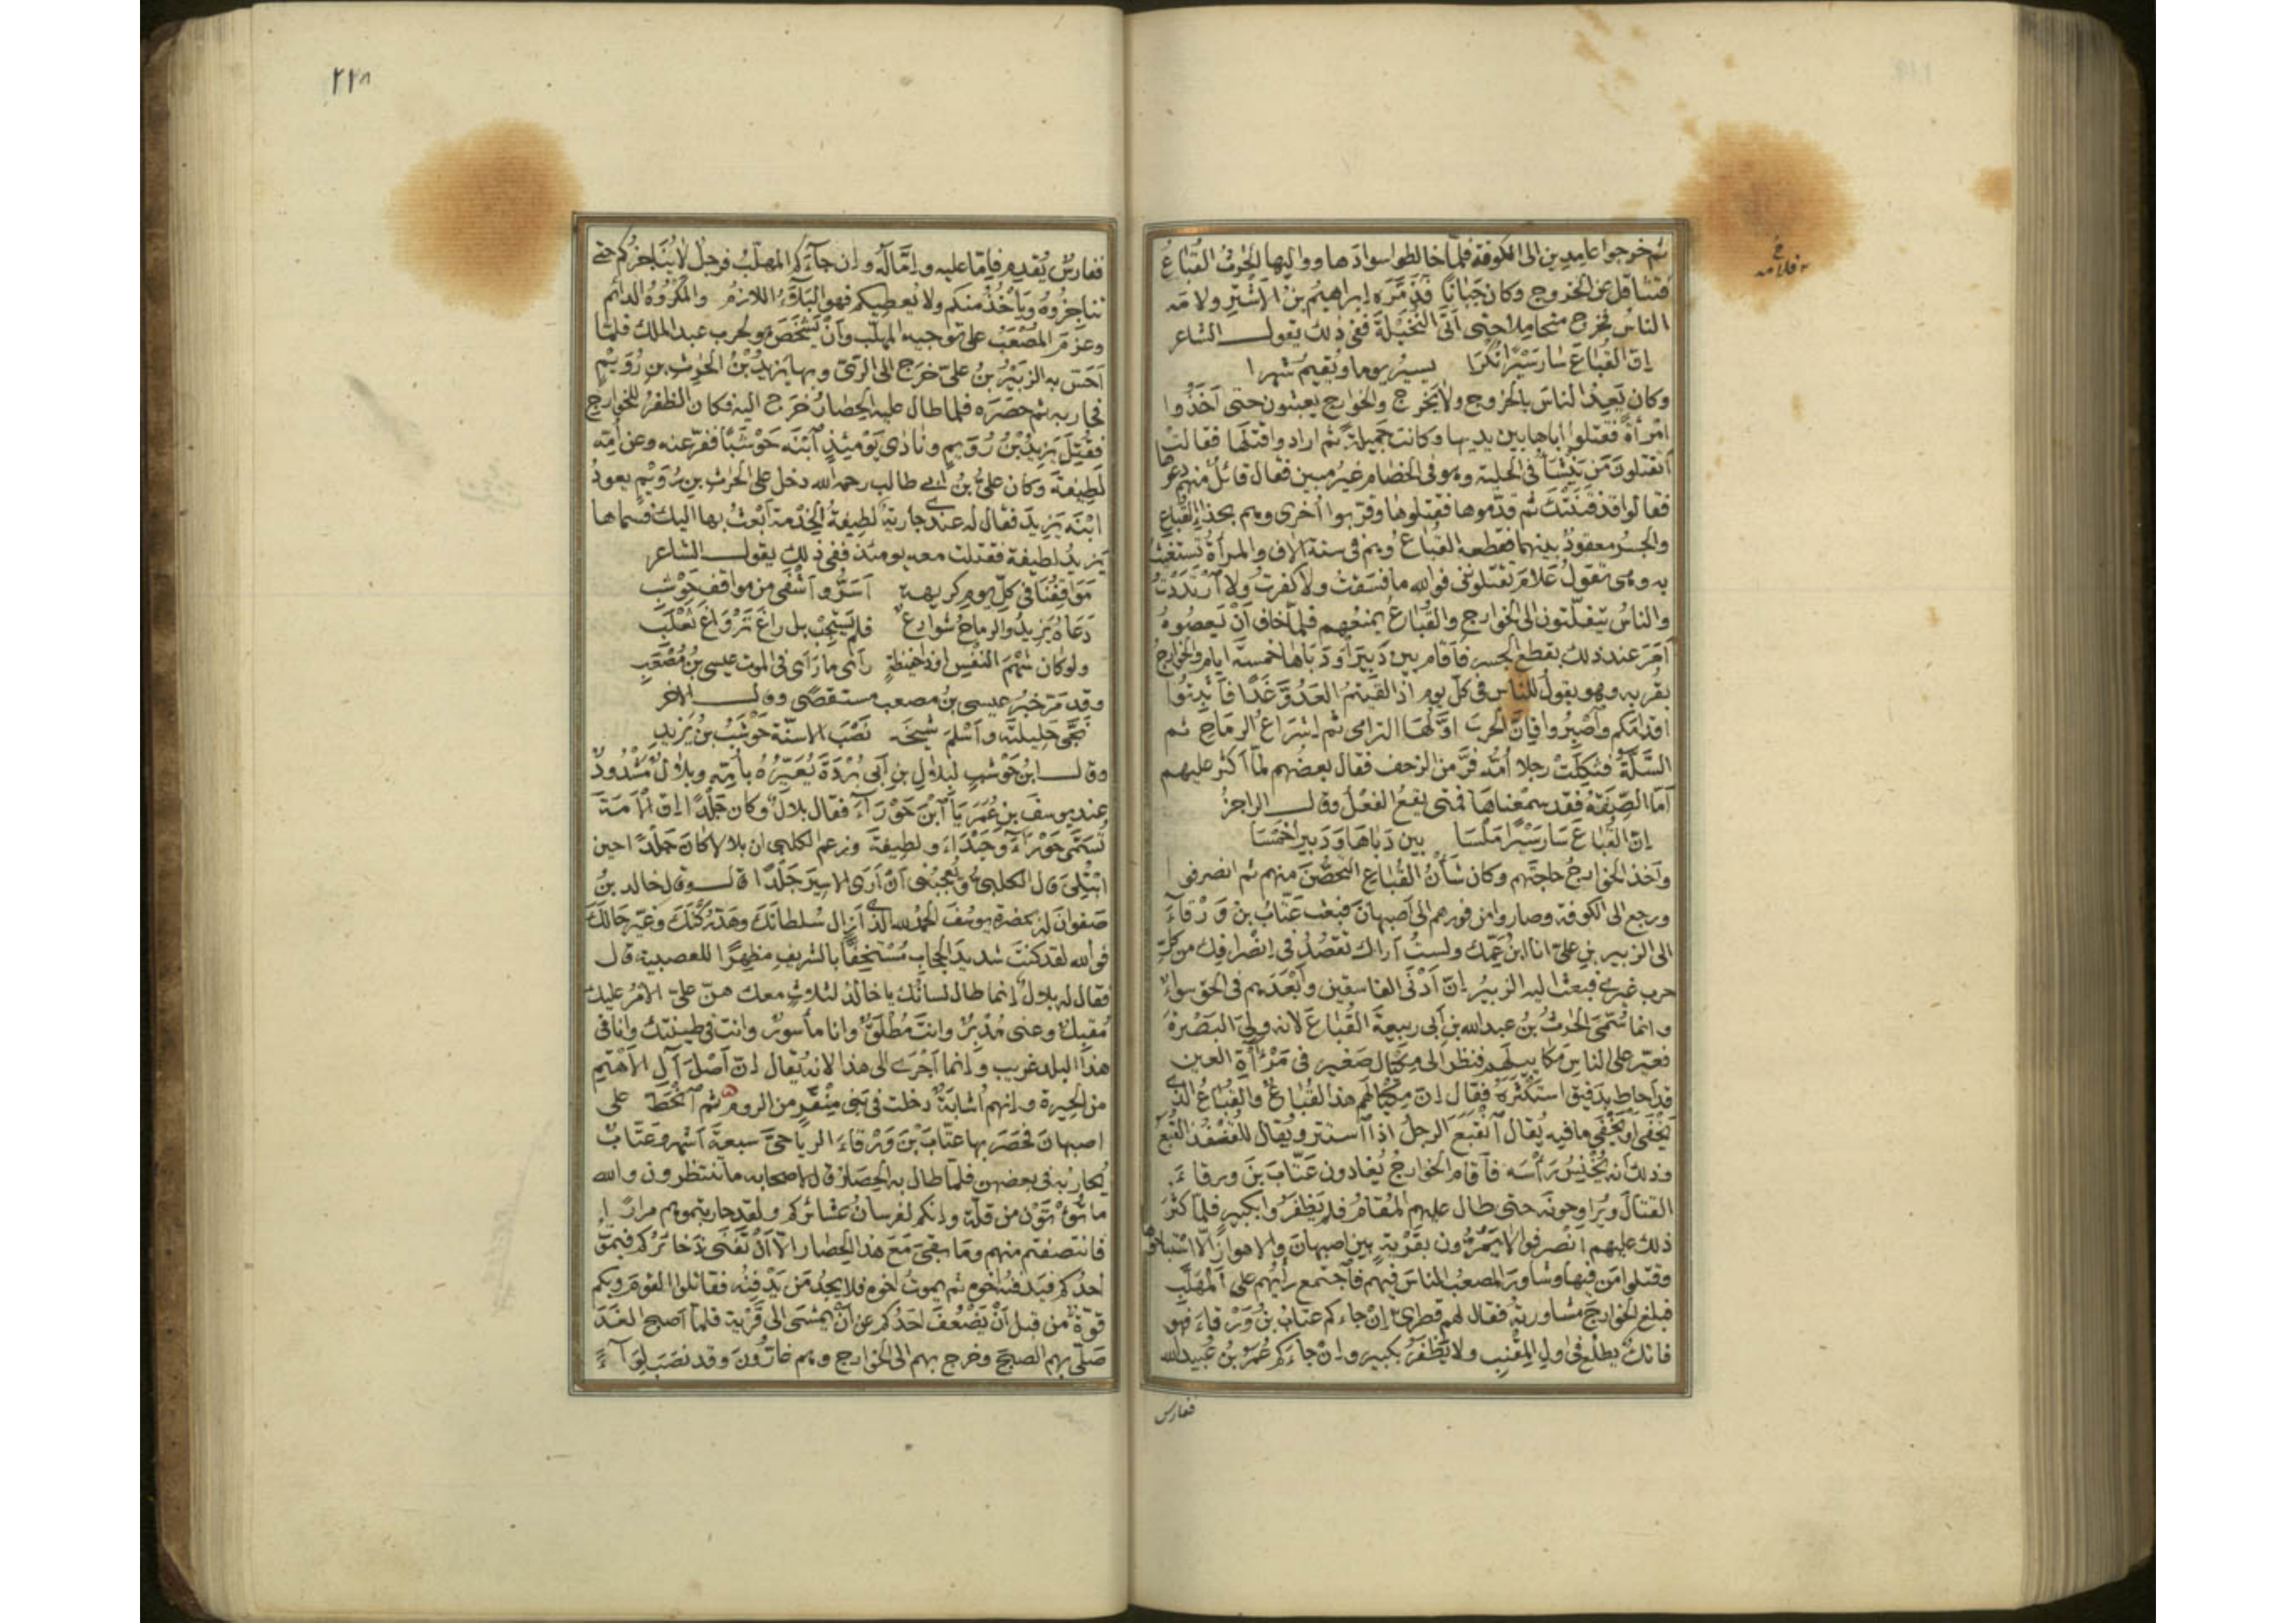 ثم خرجوا عامدين الى الكوفة فلما خالطوا سوادها وواليها الحرث القُباع
فتثاقل عن الخروج وكان جبانا فذمّره إبراهيم بن الاشتر ولامه
الناس فخرج متحاملا حتى اتى النُخَيلة ففي ذلك يقول الشاعر
إن القُباعَ سار سَيْرًا نُكْرَا يسير يوما ويقيم شهرا
وكان يَعِدُ الناس بالخروج ولا يخرج والخوارج يعبثون حتى أخذوا
امرأة فقتلوا اباها بين يديها وكانت جميلة ثم ارادوا قتلها فقالت
أتقتلون من يُنشَّأ في الحلية وهو في الخصام غير مبين فقال قائل منهم دعوها
فقالوا قد فتنتك ثم قدّموها فقتلوها وقربوا أخرى وهم بحذا القباع
والجسر معقود بينهما فقطعه القباع وهم في ستة الاف والمرأة تستغيث
به وهي تقول علام تقتلونني فوالله ما فسقت ولا كفرت ولا ارتددت
والناس يتفلّتون الى الخوارج والقباع يمنعهم فلما خاف أن يعصوه
أمر عند ذلك بقطع الجسر فأقام بين دَبيرا ودَباها خمسة ايام والخوارج
بقربه وهو يقول للناس في كل يوم اذا لقيتم العدوّ غدا فأثبتوا
اقدامكم وأصبروا فإن الحرب اولها الترامى ثم إشراع الرماح ثم
السلّة فثكلت رجلا أمّه فرّ من الزحف فقال بعضهم لمّا اكثر عليهم
أمّا الصفة فقد سمعناها فمتى يقع الفعل وقال الراجز
إن القُباعَ سار سَيْرًا مَلْسَا بين دباها ودبيرا خمسا
وأخذ الخوارج حاجتهم وكان شأن القباع التحصّن منهم ثم انصرفوا
ورجع الى الكوفة وصاروا من فورهم الى أصبهان فبعث عتّاب بن ورقاء
الى الزبير بن علي انا ابن عمّك ولست أراك تقصد في انصرافك من كل
حرب غيري فبعث اليه الزبير إن أدنى الفاسقين وأبعدهم في الحق سواء
وانما سُمّي الحرث بن عبد الله بن أبي ربيعة القباع لانه ولي البصرة
فعيّر على الناس مكاييلهم فنظر الى مكيال صغير في مرآة العين
قد احاط بدقيق استكثره فقال إن مكيالكم هذا لقُباع والقُباع الذي
يُخفى او يَخفى ما فيه يقال انقبع الرجل اذا استتر ويقال للقنفذ القبع
وذلك أنه يخنس رأسه فأقام الخوارج يغادون عتّاب بن ورقاء
القتال ويراوحونه حتى طال عليهم المقام فلم يظفروا بكبير فلما كثر
ذلك عليهم انصرفوا لا يمرّون بقرية بين اصبهان والاهواز الا استباحوها
وقتلوا من فيها وشاور المصعب الناس فيهم فاجتمع رأيهم على المهلّب
فبلغ الخوارج مشاورته فقال لهم قطري إن جاءكم عتاب بن ورقاء فهو
فاتك يطلع في اول المقنب ولا يظفر بكبير وإن جاءكم عمر بن عبيد الله
فقارس
ففارس يقدم فإما عليه وإما له وإن جاءكم المهلب فرجل لا يناجزكم حتى
تناجزوه ويأخذ منكم ولا يعطيكم فهو البلاء اللازم والمكروه الدائم
وعزم المصعب على توجيه المهلب وأن يشخص هو لحرب عبد الملك فلما
أحسّ به الزبير بن علي خرج الى الريّ وبها يزيد بن الحرث بن رُوَيم
فحاربه ثم حصره فلما طال عليه الحصار خرج اليه فكان الظفر للخوارج
فقُتل يزيد بن رويم ونادى يومئذ ابنه حوشبا ففرّ عنه وعن أمّه
لطيفة وكان علي بن أبي طالب رحمه الله دخل على الحرث بن رويم يعود
ابنه يزيد فقال له عندي جارية لطيفة الخدمة أبعث بها اليك فسماها
يزيد لطيفة فقتلت معه يومئذ ففي ذلك يقول الشاعر
مَواقفنا في كل يوم كريهة أسرّ وأشفى من مواقف حوشب
دعاه يزيد والرماح شوارع فلم يستجب بل راغ ترواغ ثعلب
ولو كان شهم النفس او ذا حفيظة رأى ما رأى في الموت عيسى بن مصعب
وقد مر خبر عيسى بن مصعب مستقصى وقال الاخر
نجّى حليلته وأسلم شيخه نصب الاسنّة حوشب بن يزيد
وقال ابن حوشب لبلال بن أبي بردة يعيّره بأمّه وبلال مشدود
عند يوسف بن عمر يا ابن حوراء فقال بلال وكان جلدا إن الأمة
تسمّى حوراء وجيداء ولطيفة وزعم الكلبي ان بلالا كان جلدا حين
ابتلي قال الكلبي ويعجبني أن أرى الاسير جلدا قال وقال خالد بن
صفوان له بحضرة يوسف الحمد لله الذي أزال سلطانك وهدّ ركنك وغيّر حالك
فوالله لقد كنت شديد الحجاب مستخفا بالشريف مظهرا للعصبية قال
فقال له بلال إنما طال لسانك يا خالد لثلاث معك هنّ عليّ الامر عليك
مقبل وعني مدبر وانت مطلق وانا مأسور وانت في طينتك وانا في
هذا البلد غريب وإنما أجرى الى هذا لانه يقال إن أصل آل الاهتم
من الحيرة وإنهم أشابة دخلت في بني منقر من الروم ثم انحط على
اصبهان فحصر بها عتّاب بن ورقاء الرياحيّ سبعة أشهر وعتّاب
يحاربه في بعضهن فلما طال به الحصار قال لاصحابه ما تنتظرون والله
ما تؤتون من قلّة وإنكم لفرسان عشائركم ولقد حاربتموهم مرارا
فانتصفتم منهم وما بقي مع هذا الحصار الا أن تفنى ذخائركم فيموت
أحدكم فيدفنه أخوه ثم يموت أخوه فلا يجد من يدفنه فقاتلوا القوم وبكم
قوّة من قبل أن يضعف احدكم عن أن يمشى الى قرنه فلما أصبح الغد
صلّى بهم الصبح وخرج بهم الى الخوارج وهم غارّون وقد نصب لواء